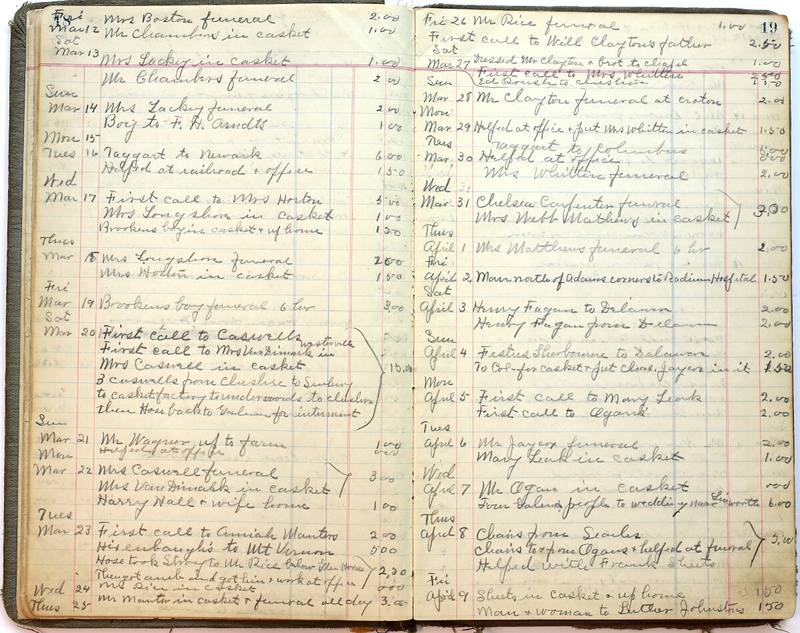 18
Fri Mrs Boston funeral 2.00
Mar 12 Mr Chambers in casket 1.00
Sat
Mar 13
Mrs Lackey in casket 1.00
Mr Chambers funeral 2 00
Sun
Mar 14 Mrs Lackey funeral 2 00
Boy to F. H. Arndts 1 00
Mon 15
Tues 16 Taggart to Newark 6 00
Helped at railroad + office 1 50
Wed
Mar 17 First call to Mrs Horton 5 00
Mrs Longshore in casket 1 00
Brookens boy in casket + up home 1 50
Thus
Mar 18 Mrs Longshore funeral 2 00
Mrs Horton in casket 1 50
Fri
Mar 19 Brookens boy funeral 6 hr 3 00
Sat
Mar 20 First call to Caswells Westerville
First call to Mrs Van Dimark in
Mrs Caswell in casket 10.00
3 caswells from Cheshire to Sunbury
to casket factory to underwoods to cheshire
then Hose back to Galena for interment
Sun
Mar 21 Mr Wagner up to farm 1 00
Mon Helped at office
Mar 22 Mrs Caswell funeral 3 00
Mrs Van Dimark in casket
Harry Hall + wife home 1 00
Tues
Mar 23 First call to Amiah Mantors 2 00
Hixenbaugh's to Mt Vernon 5 00
Hose took Strong to Mr Rice below
They got amb and got him + work at office 2,50
Wed 24 Mrs Rice in casket
Thus 25 Mr Mantor in casket + funeral all day 3.00
19
Fri 26 Mr Rice funeral 1.00
First call to Will Claytons father 2.50
Sat
Mar 27 Dressed Mr Clayton + brot to chapel 1.00
First call to Mrs Whitten 2 50
Sun
Mar 28 Mr Clayton funeral at croton 2.00
Mon
Mar 29 Helped at office + put Mrs Whitten in casket 1.50
Tues Taggart to Columbus 5.00
Mar. 30 Helped at office
Mrs Whitten funeral 2.00
Wed 31
Mar 31 Chelsea Carpenter funeral 3.00
Mrs Webb Mathews in casket
Thus
April 1 Mrs Matthews funeral 6 hr 2.00
Fri
April 2 Man north of Adams corners to Radium Hospital 1.50
Sat
April 3 Henry Fagan to Delawn 2.00
Henry Fagan from Delawn 2.00
Sun
April 4 Festus Sherbourne to Delawn 2.00
To Col- for casket + put Chas. Jaycox in it 1.50
Mon
April 5 First call to Mary Leak 2.00
First call to Ogans 2.00
Tues
April 6 Mr Jaycox funeral 2.00
Mary Leak in casket 1.00
Wed
April 7 Mr Ogan in casket 00 0
Four Galena people to wedding near 6.00
Thus
April 8 Chairs from Searles
Chairs to + from Ogans + helped at funeral 5.00
Helped with Frank Sheets
Fri
April 9 Sheets in casket + up home 1 50
Man + woman to Butler Johnstons 1 50